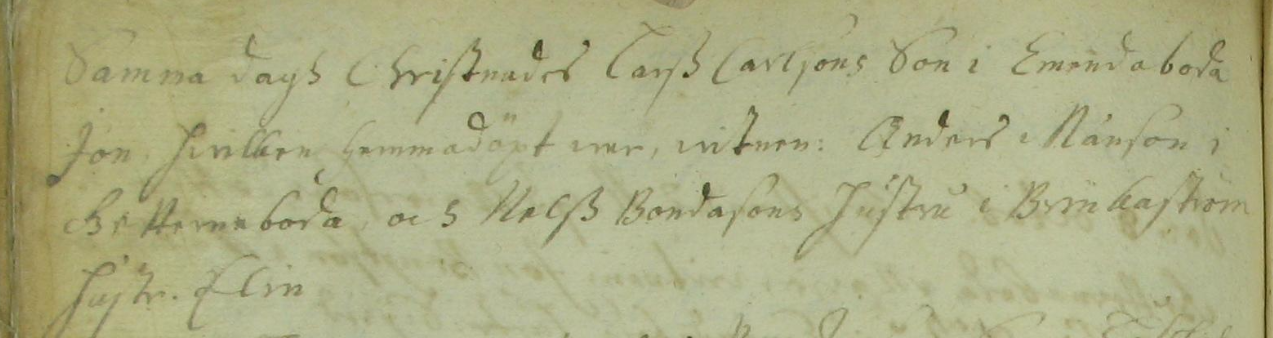 Samma dagh Christnades Larß Carlsons Son i Emmdaboda
Jon, hvilken hemmadöpt war, witnen: Anders Månson i
boda, och Nelß Bondasons hustru i Brinkaström
hustr. Elin